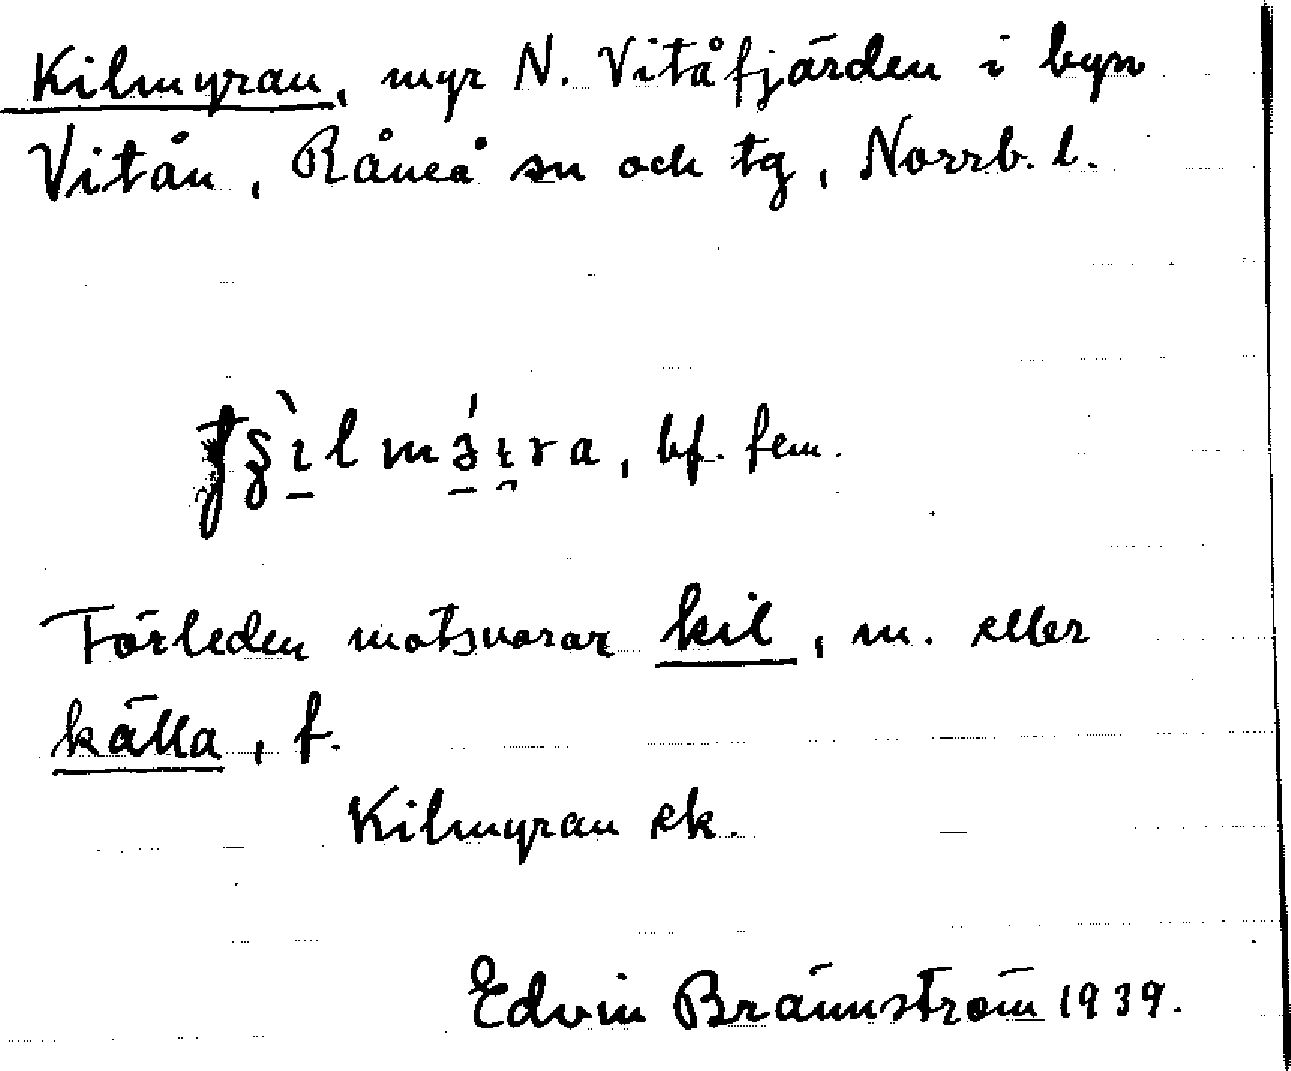 Kilmyran, myr N. Vitåfjärden i byn
Vitån, Råneå sn och tg, Norrb. l.
bf. fem.
Förleden motsvarar kil, m. eller
källa, f.
Kilmyran ek.
Edvin Brännström 1939.